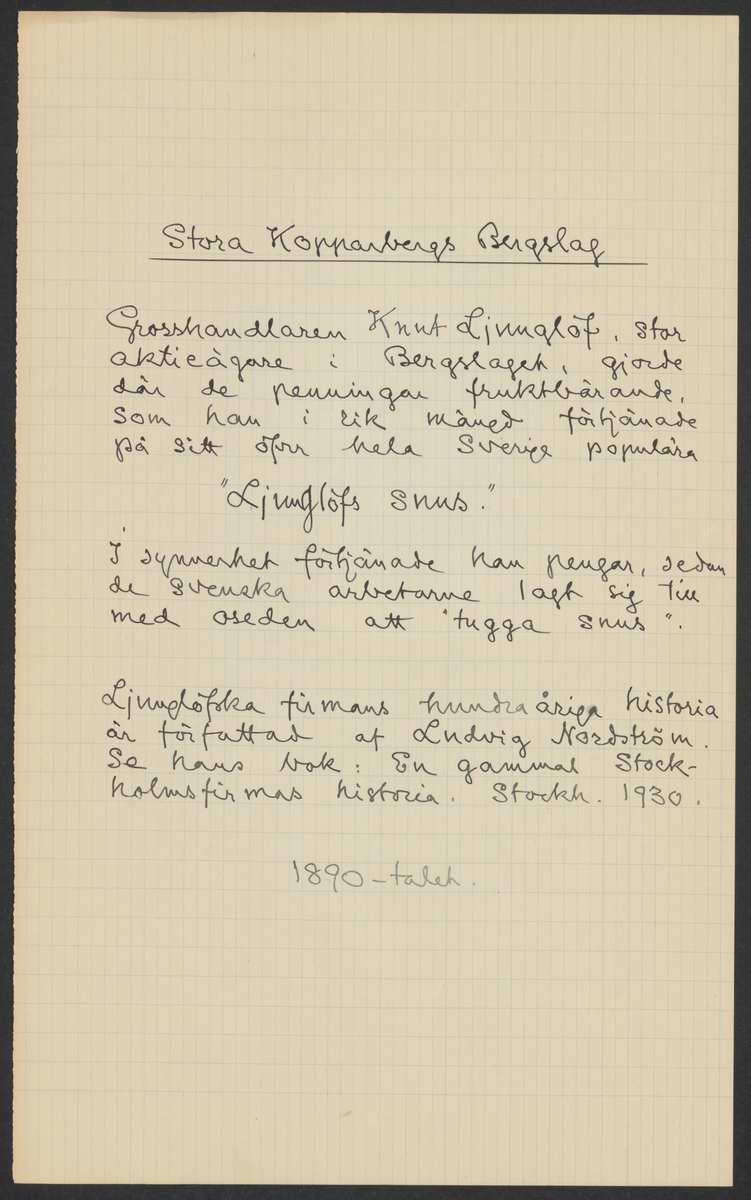 Stora Kopparbergs Bergslag
Grosshandlaren Knut Ljunglöf, stor
aktieägare i Bergslaget, gjorde
där de penningar fruktbärande,
som han i rik mängd förtjänade
på sitt öfver hela Sverige populära
"Ljunglöfs snus."
I synnerhet förtjänade han pengar, sedan
de svenska arbetarne lagt sig till
med oseden att "tugga snus".
Ljunglöfska firmans hundraåriga historia
är författad af Ludvig Nordström.
Se hans bok: En gammal Stock-
holmsfirmas historia. Stockh. 1930.
1890-talet.